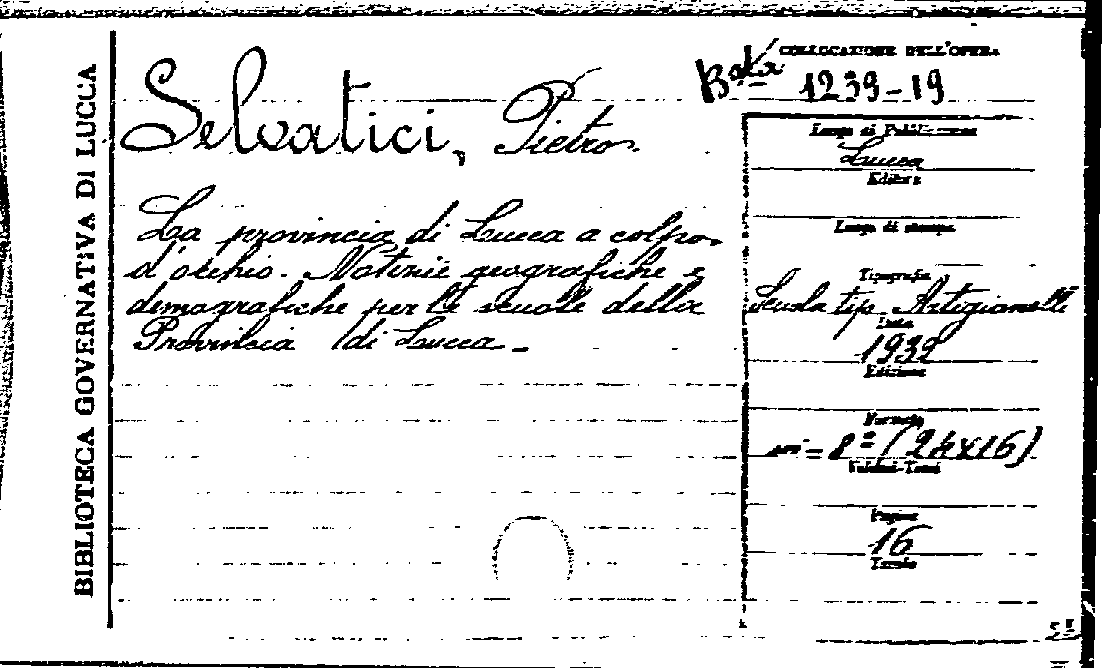 BIBLIOTECA GOVERNATIVA DI LUCCA
Selvatici, Pietro.
La provincia di Lucca a colpo
d'occhio. Notizie geografiche e
demografiche per le scuole della
Provincia di Lucca.
COLLOCAZIONE DELL'OPERA
Bta 1239-19
Luogo di Pubblicazione
Lucca
Editore
Luogo di stampa
Tipografia
Scuola tip. Artigianelli
Data
1939
Edizione
Formato
in = 8º (24x16)
Volumi-Tomi
Pagine
16
Tavole